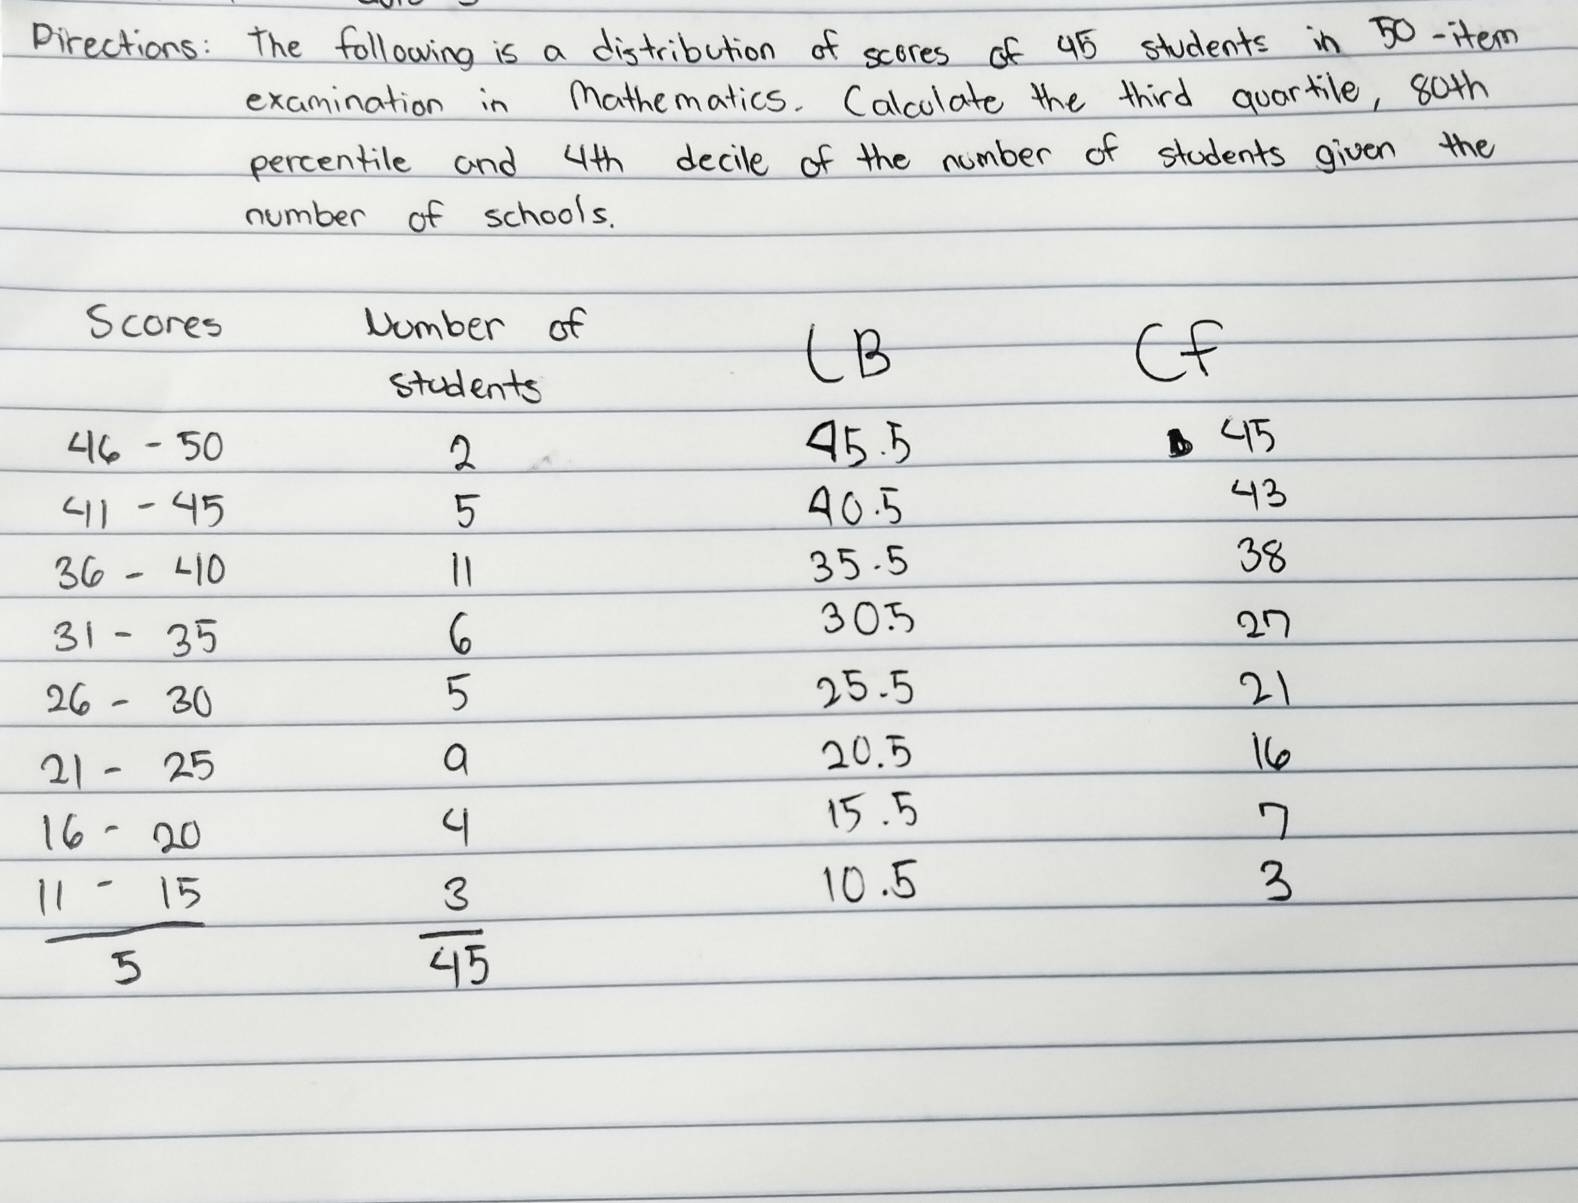 Directions: The following is a distribution of scores of 45 students in 50-item
examination in Mathematics. Calculate the third quartile, 80th
percentile and 4th decile of the number of students given the
number of schools.
Scores Number of students LB Cf
46 - 50 2 45.5 45
41 - 45 5 40.5 43
36 - 40 11 35.5 38
31 - 35 6 30.5 27
26 - 30 5 25.5 21
21 - 25 9 20.5 16
16 - 20 4 15.5 7
11 - 15 3 10.5 3
5 45